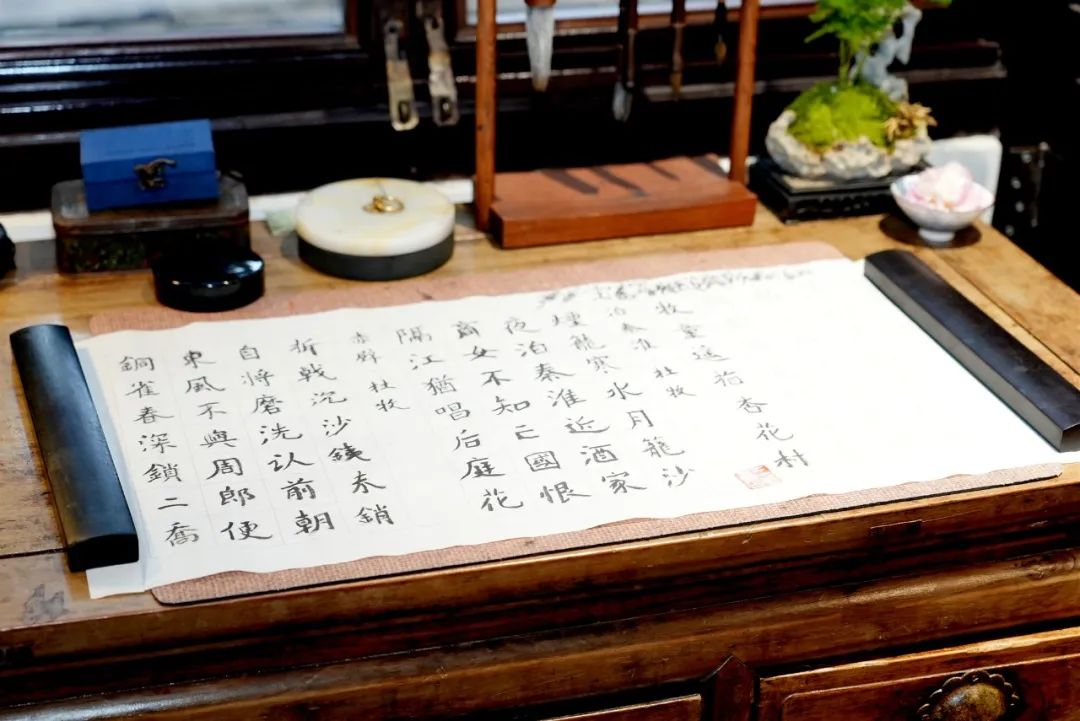 牧童遥指杏花村
泊秦淮 杜牧
煙籠寒水月籠沙
夜泊秦淮近酒家
商女不知亡國恨
隔江猶唱后庭花
赤壁 杜牧
折戟沉沙鐵未銷
自将磨洗认前朝
東風不與周郎便
銅雀春深鎖二喬